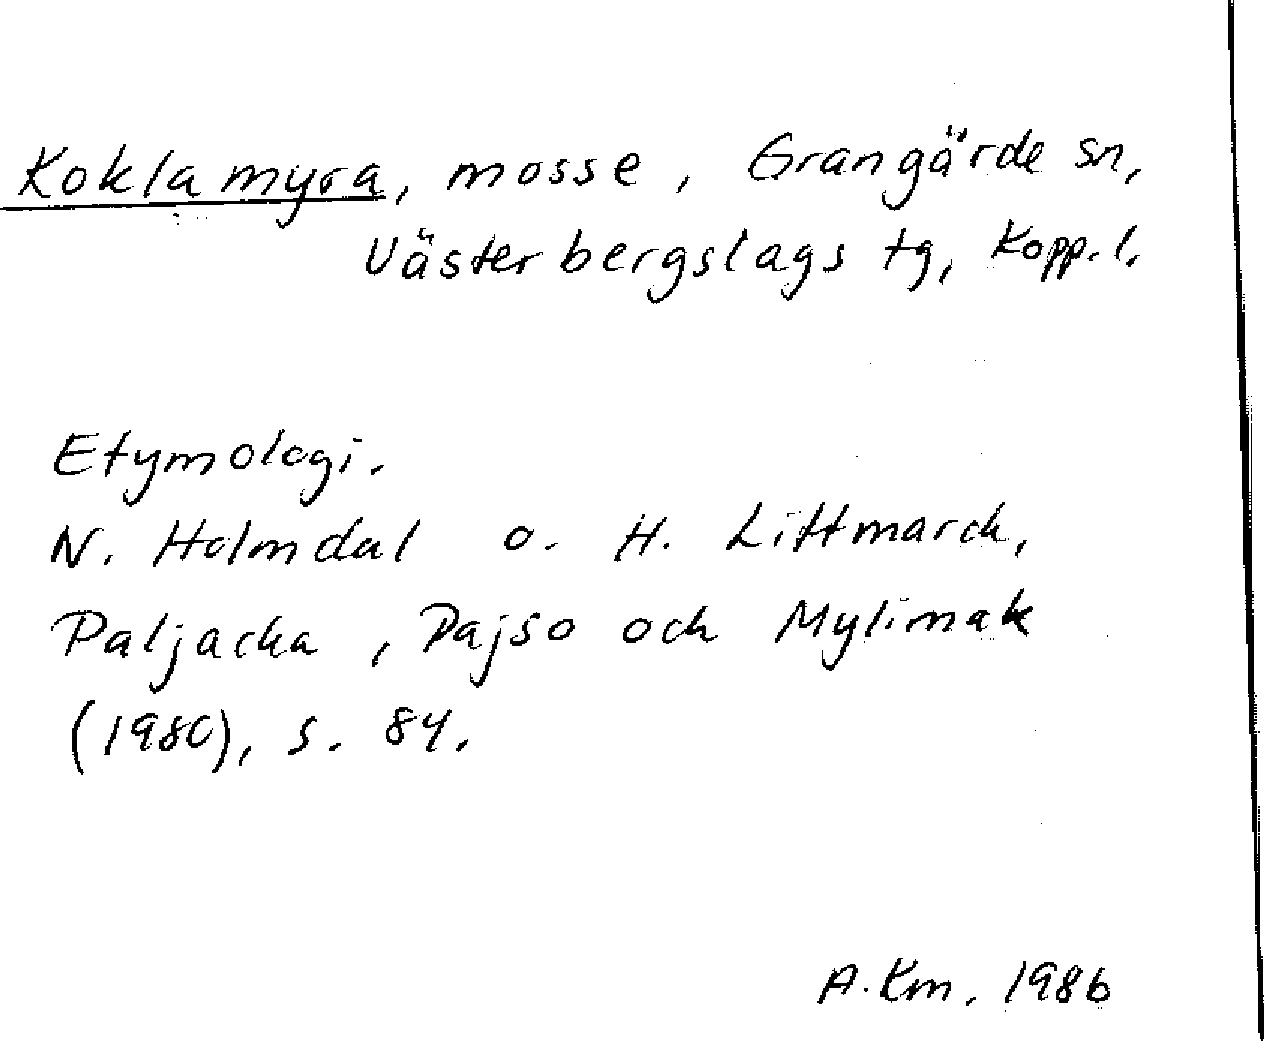 Koklamyra, mosse, Grangärde sn,
Västerbergslags tg, Kopp. l.
Etymologi.
N. Holmdal o. H. Littmarck,
Paljacka, Pajso och Mylimak
(1980), s. 84.
A. Km. 1986